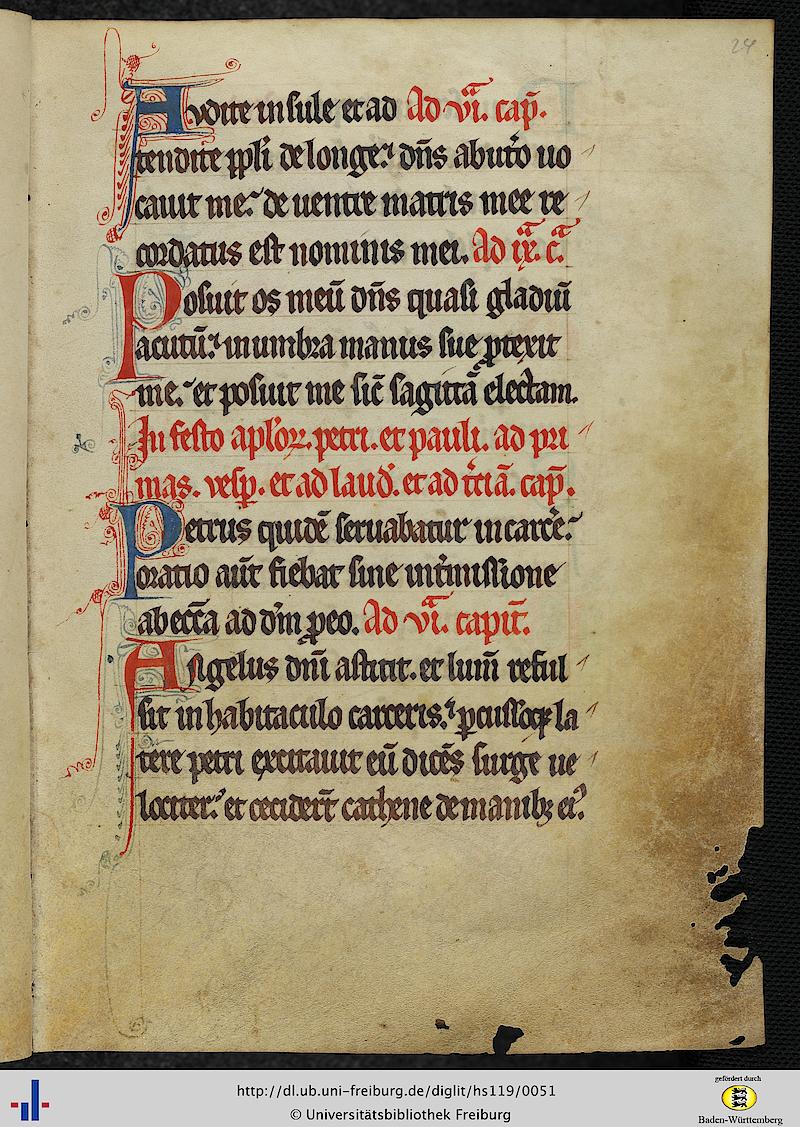 24
Avdite insule et ad Ad vi. cap̄.
tendite ppl'i de longe: dn̄s ab ut'o uo
cauit me: de uentre matris mee re
cordatus est nominis mei. Ad ix. c̄.
Posuit os meū dn̄s quasi gladiū
acutū: in umbra manus sue ꝓtexit
me: et posuit me sic̄ sagittā electam.
In festo apl'oꝝ. petri. et pauli. ad pri
mas. vesꝑ. et ad laud'. et ad t'ciā. cap̄.
Petrus quidē seruabatur in carc'e:
oratio aūt fiebat sine int'missione
ab ecc̄a ad dm̄ ꝓ eo. Ad vi. capit̄.
Angelus dn̄i astitit. et lum̄ reful
sit in habitaculo carceris: ꝑcussoqꝫ la
tere petri excitauit eū dicēs surge ue
lociter: et cecider̄t cathene de manibꝫ eiꝰ.
http://dl.ub.uni-freiburg.de/diglit/hs119/0051
© Universitätsbibliothek Freiburg
gefördert durch
Baden-Württemberg